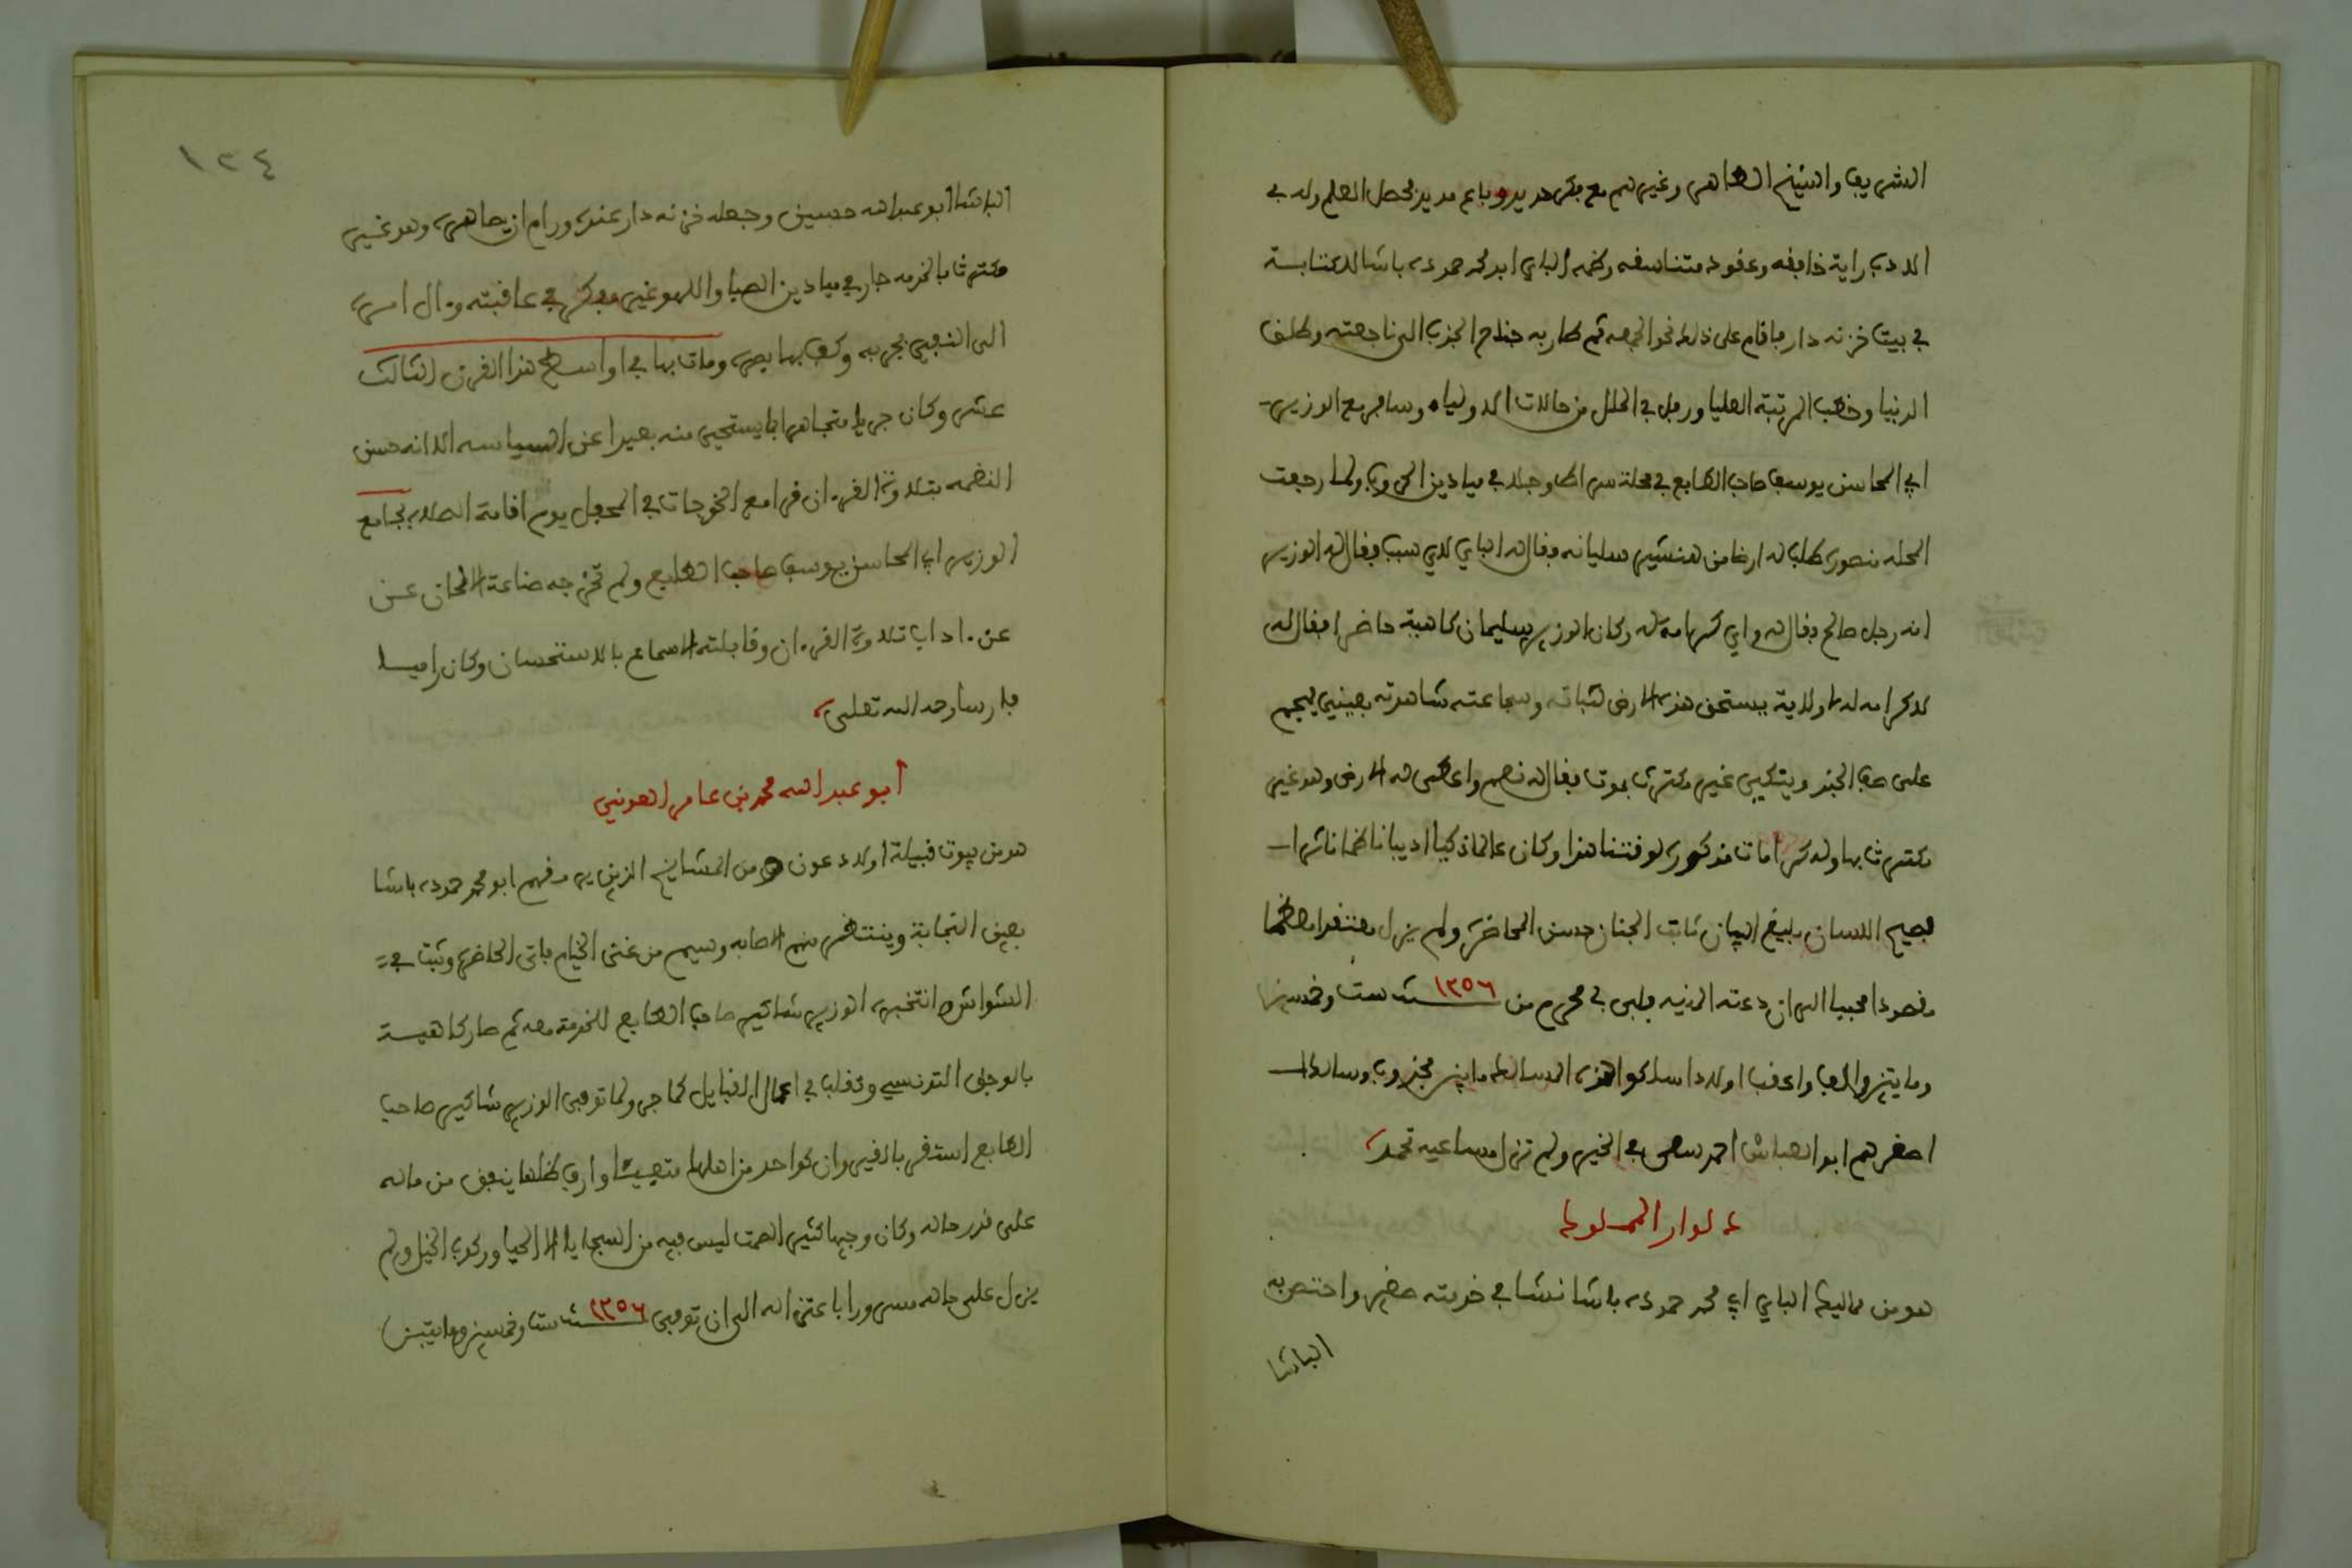 الشريف والشيخ الطاهر وغيرهم مع فكر حديد وباع مديد فحصل العلم وله في
الادب راية خافقه وعقود متناسقه وخدمه الباي ابو محمد حموده باشا للكتابة
في بيت خزنه دار فاقام على ذلك نحو الجمعه ثم طار به جناح الجذب الى ناجعته وطلق
الدنيا وخطب المرتبة العليا ورفل في الحلل من حالات الاولياء وسافر مع الوزير
ابي المحاسن يوسف صاحب الطابع في محلة سراط وجال في ميادين الحروب ولما رجعت
المحله منصوره طلب له ارضا من هنشير سليانه فقال له الباي لاي سبب فقال له الوزير
انه رجل صالح فقال له واي كرامة له وكان الوزير سليمان كاهية حاضرا فقال له
لا كرامه له ولا ولاية يستحق هذه الارض لثباته وشجاعته شاهدته بعيني يهجم
على صف الجند ويتكي غير مكترث بموت فقال له نعم واعطى له الارض وهو غير
مكترث بها وله كرامات مذكوره لوقتنا هذا وكان عالما ذكيا اديبا ناظما ناثرا
فصيح اللسان بليغ البيان ثابت الجنان حسن المحاضره ولم يزل معتقدا معظما
مقصودا محببا الى ان دعته المنيه فلبى في محرم من ١٢٥٦ سنة ست وخمسين
ومايتين والف واعقب اولادا سلكوا هذه المسالك ما بين مجذوب وسالك
اصغرهم ابو العباس احمد سعى في الخير ولم تزل مساعيه تحمد
علوار المملوك
هو من مماليك الباي ابي محمد حموده باشا نشا في خدمته صغيرا واختص به
الباشا
١٢٤
الباشا ابو عبد الله حسين وجعله خزنه دار عنده ورام ان يصاهره وهو غير
مكترث بالخدمه جار في ميادين الصبا واللهو غير مفكر في عاقبته ومآل امره
الى النفي بجربه وكف بها بصره ومات بها في اواسط هذا القرن الثالث
عشر وكان جريا متجاهرا بما يستحيى منه بعيدا عن السياسه الا انه حسن
النغمه بتلاوة القرءان قرا مع الخوجات في المحفل يوم اقامة الصلاه بجامع
الوزير ابي المحاسن يوسف صاحب الطابع ولم تخرجه صناعة الالحان عن
عن ءاداب تلاوة القرءان وقابلته الاسماع بالاستحسان وكان راميا
فارسا رحمه الله تعالى
ابو عبد الله محمد بن عامر العوني
هو من بيوت قبيلة اولاد عون ومن المشايخ الذين يرمقهم ابو محمد حموده باشا
بعين النجابة وينتظر منهم الاصابه وسيم من غنى الخيام فاتى الحاضرة وثبت في
الشواش وانتخبه الوزير شاكير صاحب الطابع للخدمة معه ثم صار كاهية
بالوجق التونسي وتقلب في اعمال القبايل كما جر ولما توفى الوزير شاكير صاحب
الطابع استقر بالقيروان كواحد من اهلها متعيشا وارف ظلها ينفق من ماله
على قدر حاله وكان وجيها كثير الصمت ليس فيه من السجايا الا الحيا وركوب الخيل ولم
يزل على حاله مسرورا باعتزاله الى ان توفى ١٢٥٦ سنة ست وخمسين ومايتين